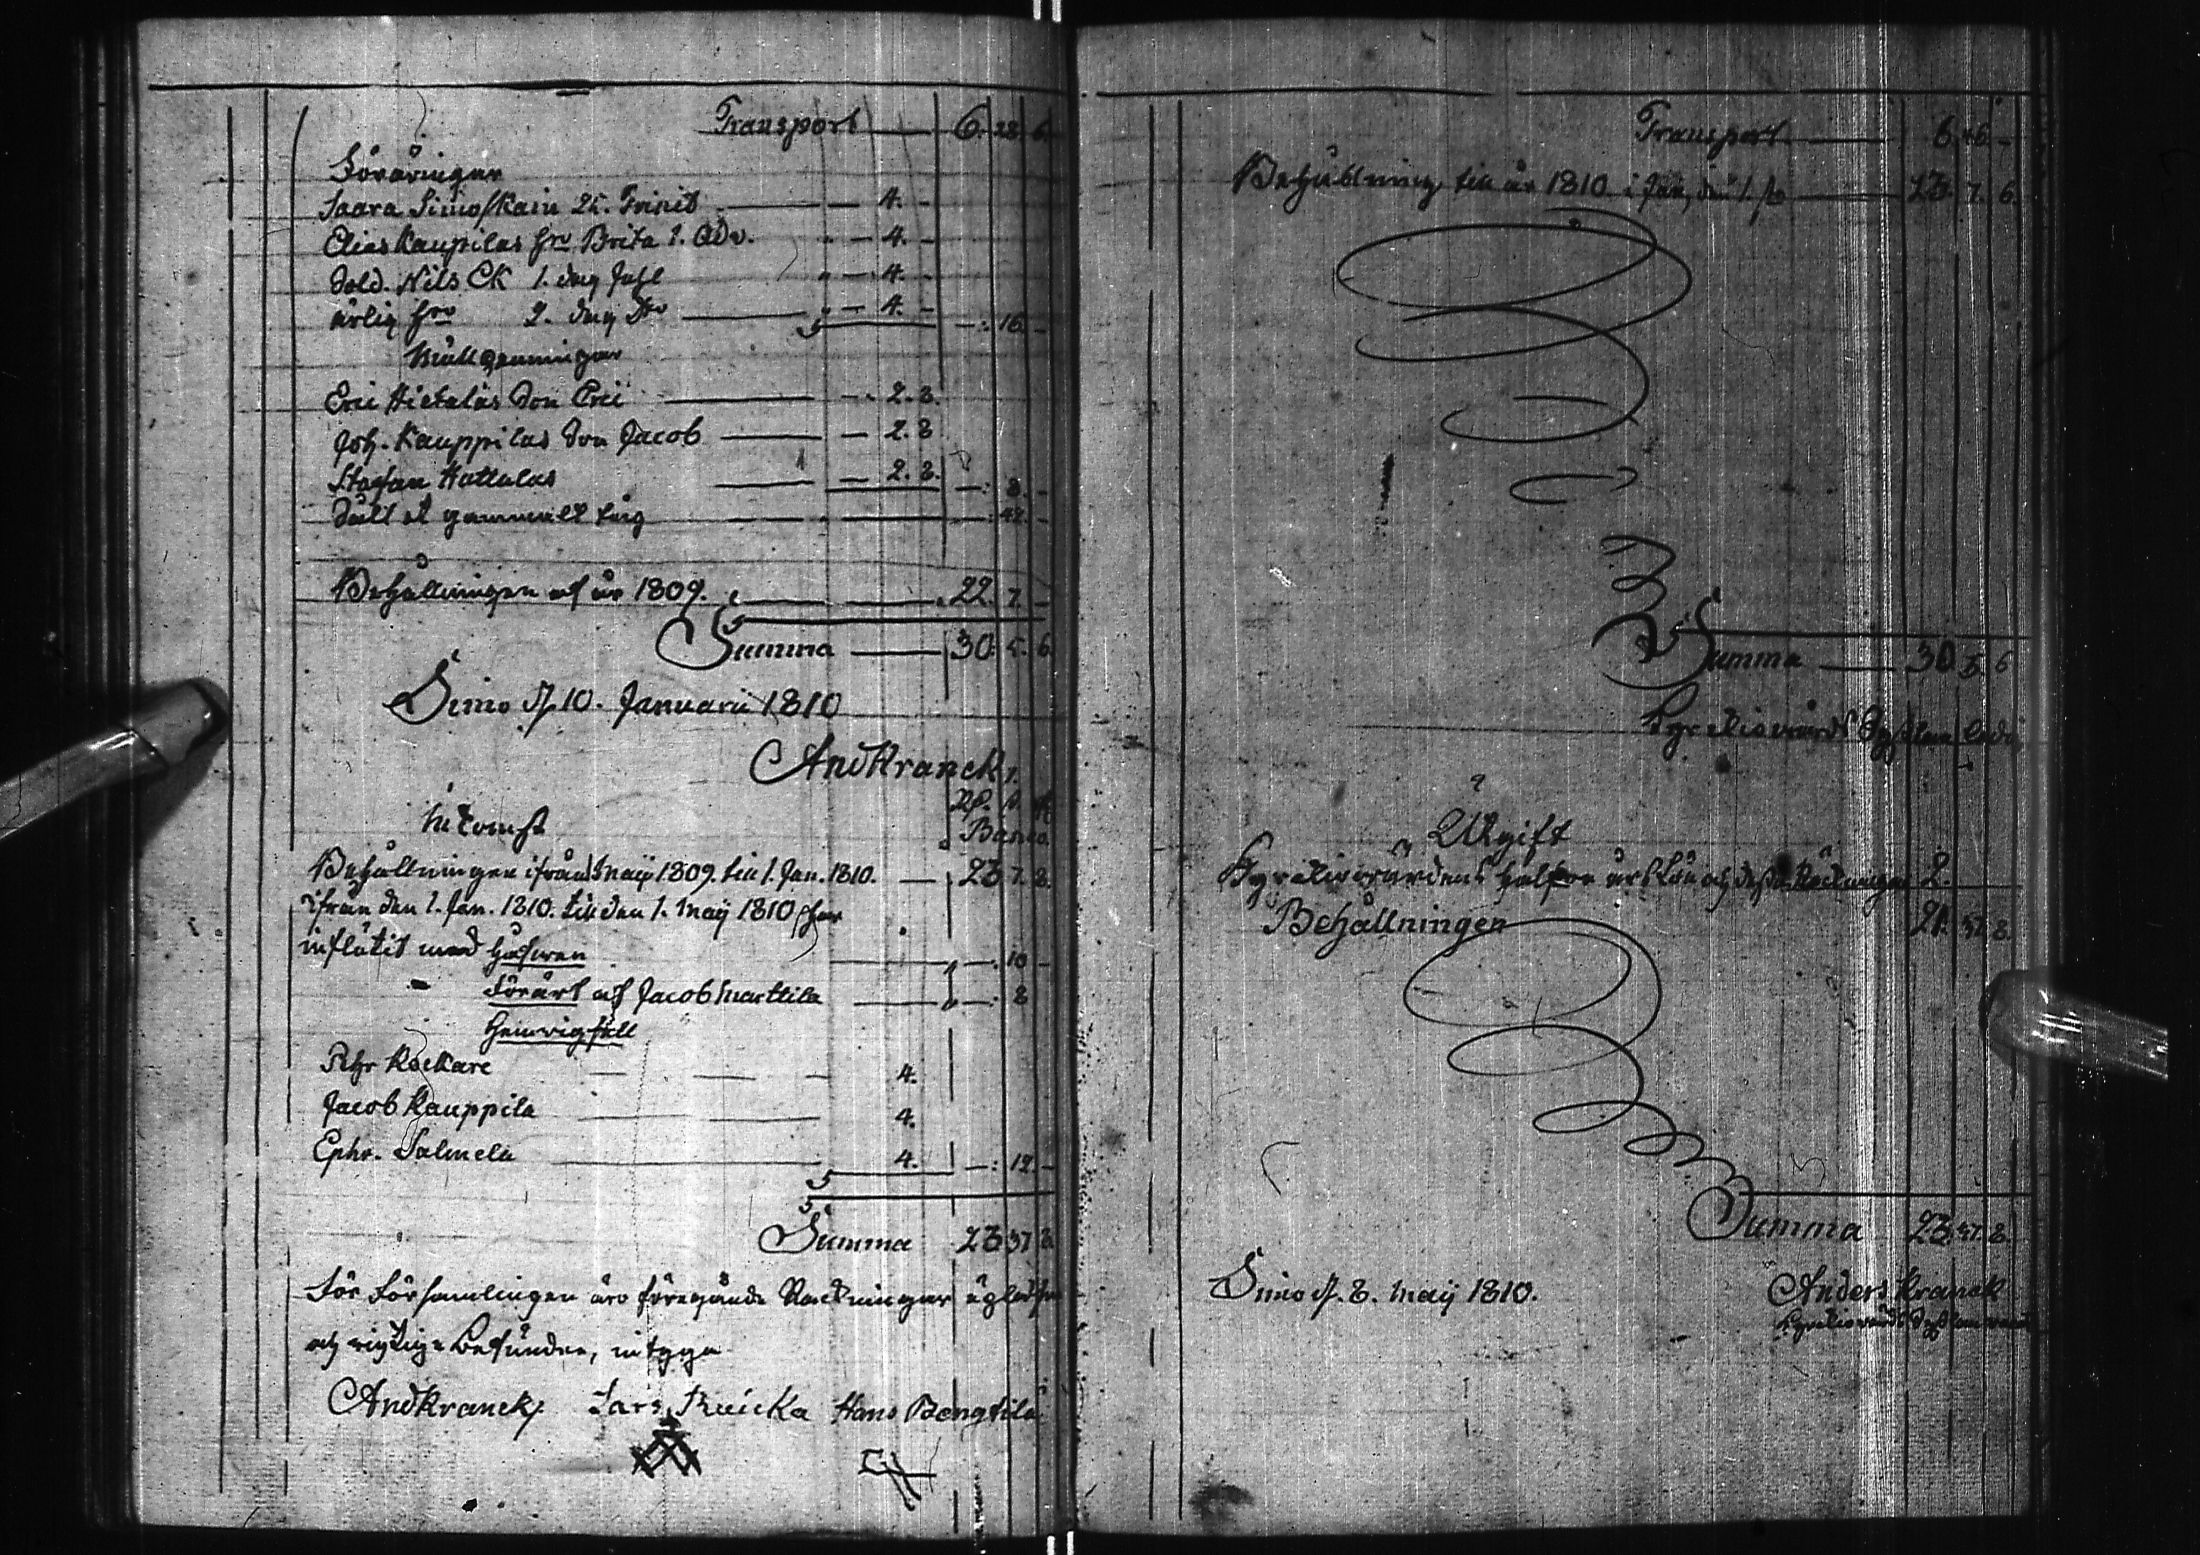 Transport 6. 28. 6.
Föräringar
Saara Simoskain 25. Trinit 4. -
Elias Kaupilas hru Brita 1. Adv. 4. -
Sold. Nils Ek 1. dag Juhl 4. -
ärlig hru 2. dag Do 4. - -: 16. -
Mullpenningar
Eric Hietalas Son Eric 2. 8.
Joh. Kauppilas Son Jacob 2. 8
Stafan Hottolas 2. 8. -: 8. -
Såldt gammalt -: 42. -
Behållningen af år 1809. 22. 7. -
Summa 30: 5. 6
Simo d. 10. Januarii 1810
AndKranck
Rd. s. r
Inkomst Banco.
Behållningen ifrån maij 1809. till 1. Jan. 1810. 23. 7. 8.
ifrån den 1. Jan. 1810. till den 1. maij 1810 har
influtit med håfwen -: 10 -
Förärt af Jacob Marttila -: 8
Pehr Kockare 4.
Jacob Kauppila 4.
Ephr. Salmela 4. -: 12. -
Summa 23 37 8.
För Församlingen äro föregående Räkningar
och riktige befundne, intyga
AndKranck Lars Ruicka Hans Bengtila
Transport 6. 46. -
Behållning till år 1810 i Jan, 23. 7. 6.
Summa 30 5. 6
Utgift
Kyrkiowärdens års Lön och Räkningar 2.
Behållningen 21. 37. 8.
Summa 23. 37. 8.
Simo d. 8. maij 1810. Anders Kranck